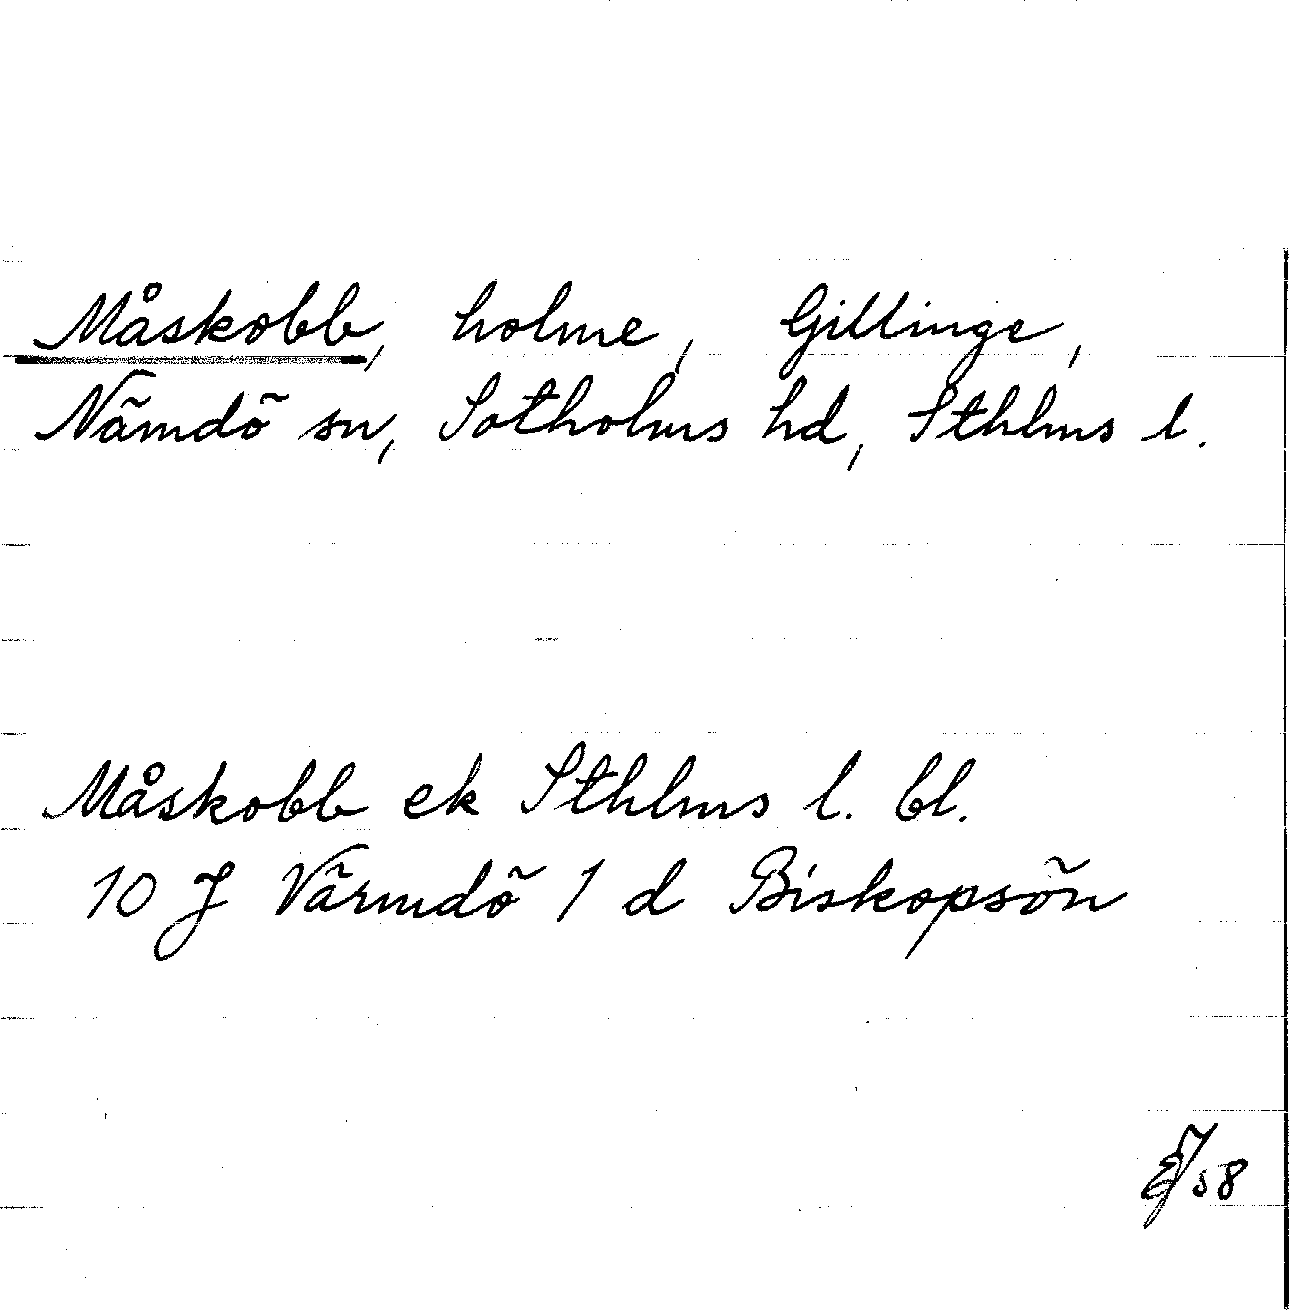 Måskobb, holme, Gillinge,
Nämdö sn, Sotholms hd, Sthlms l.
Måskobb ek Sthlms l. bl.
10 J Värmdö 1 d Biskopsön
58